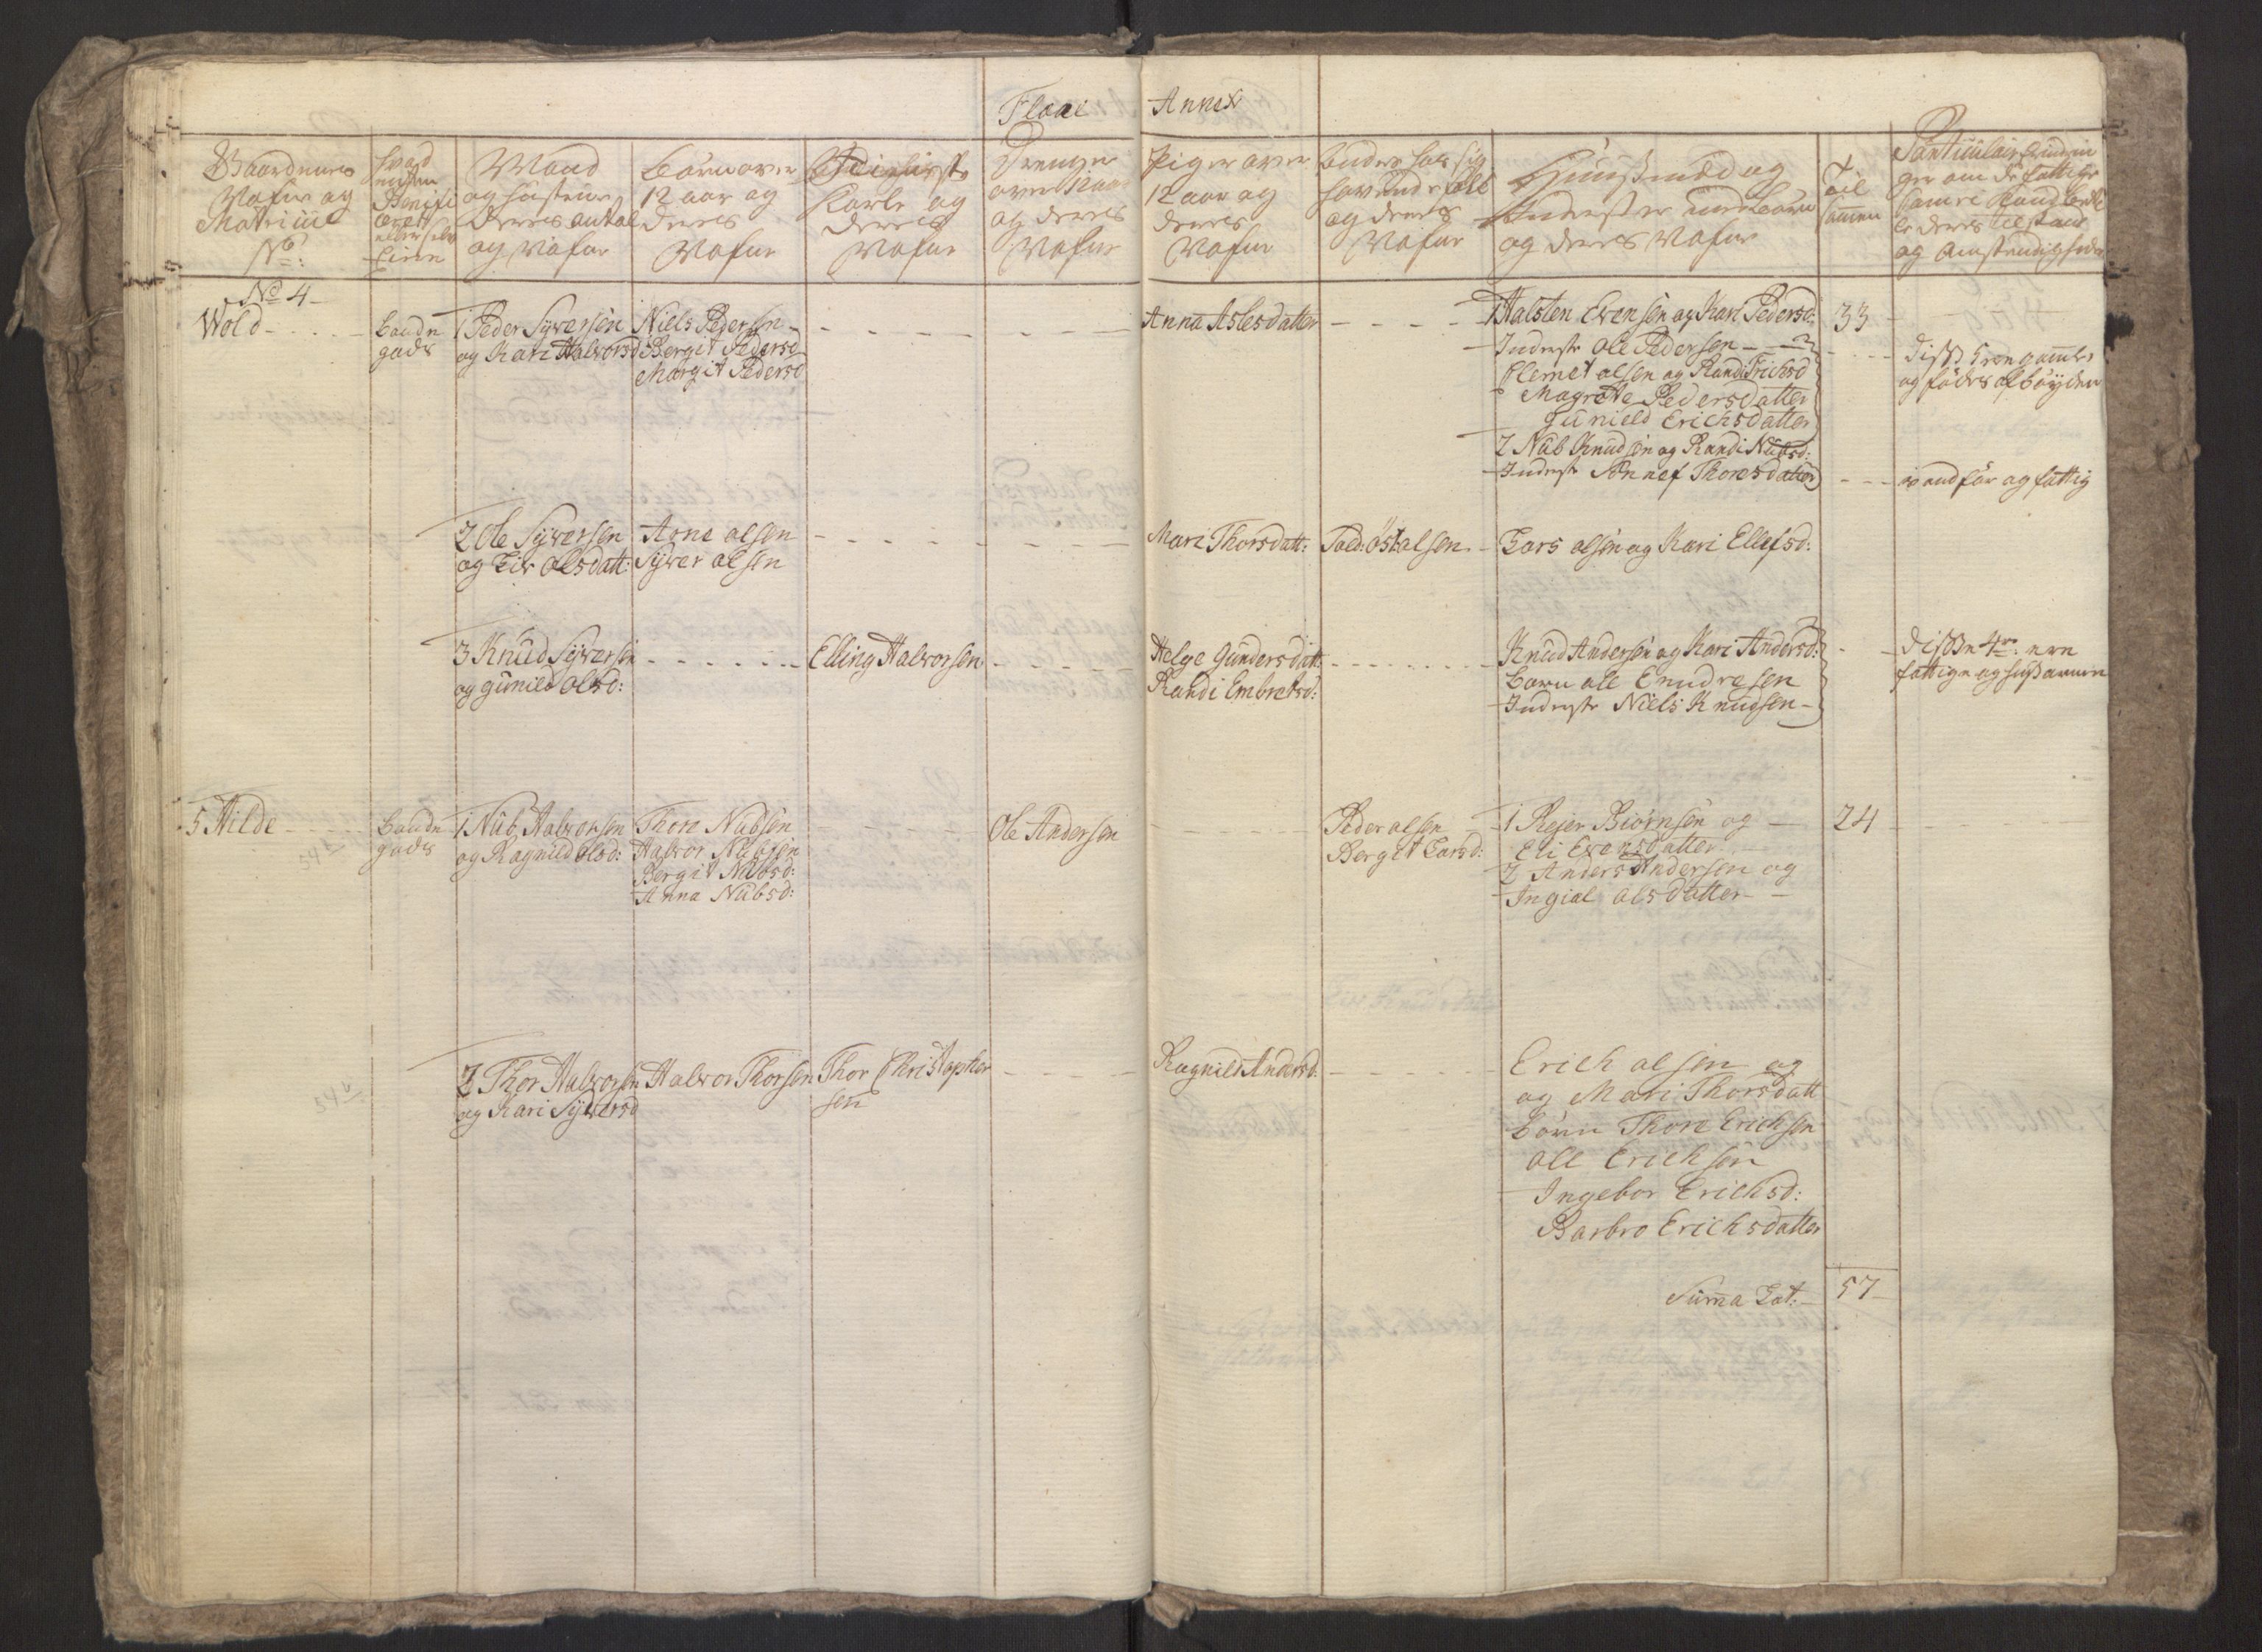 Flaae Annex
Gaardenes
Nafne og
Matricul
No:
Mand
og hustrue
deres antal
og Nafne
børn over
12 aar og
deres
Nafne
Karle og
deres
Nafne
Drenge
over 12 aar
og deres
Nafne
Piger over
12 aar og
deres
Nafne
og deres
Nafne
Huusmænd og
Inderster med børn
og deres Nafne
Til
sammen
og Omstændigheder
No 4
Wold
bonde
gods
1 Peder Syversen
og Kari Halvorsd:
Niels Pedersen
Bergit Pedersd
Margit Pedersd
Anna Aslesdatter
1 Halsten Evensen og Kari Pedersd:
Inderste Ole Pedersen
Clemet olsen og Randi Erichsd
Magrete Pedersdatter
Gunield Erichsdatter
2 Nub Knudsen og Randi Nubsd:
Inderste Sønnef Thoresdatter
33
og fødes af bøyden
vandfør og fattig
2 Ole Syversen
og Liv Olsdatt:
Arne olsen
Syver olsen
Mari Thorsdatt:
Sold: Øst olsen
Lars olsen og Kari Ellefsd:
3 Knud Syversen
og gunild Olsd:
Elling Halvorsen
Helge Gundersdatt:
Randi Embretsd:
Knud Andersen og Kari Andersd:
børn oll Enudresen
Inderste Niels Knudsen
disse 4re ere
fattige og husarme
5 Hilde
bonde
gods
1 Nub Halvorsen
og Ragnild olsd:
Thore Nubsen
Halvor Nubsen
Bergit Nubsd:
Anna Nubsd:
Ole Andersen
Peder olsen
Bergit Larsd:
1 Rejer Biørnsen og
Eli Evensdatter
2 Anders Andersen og
Ingial olsdatter
24
2 Thor Halvorsen
og Kari Syversd
Halvor Thorsen
Thor Christopher
sen
Ragnild Andersd:
Erich olsen og
og Mari Thorsdatt
børn Thore Erichsen
oll Erichsen
Ingebor Erichsd:
Barbro Erichsdatter
Summa Lat:
57